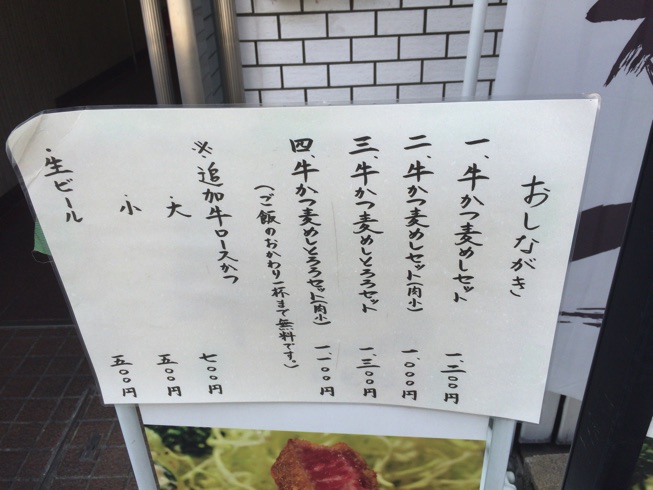 おしながき
一、牛かつ麦めしセット 一、二〇〇円
二、牛かつ麦めしセット(肉小) 一、〇〇〇円
三、牛かつ麦めしとろろセット 一、三〇〇円
四、牛かつ麦めしとろろセット(肉小) 一、一〇〇円
(ご飯のおかわり一杯まで無料です。)
※追加牛ロースかつ 七〇〇円
・大 五〇〇円
・小 五〇〇円
・生ビール